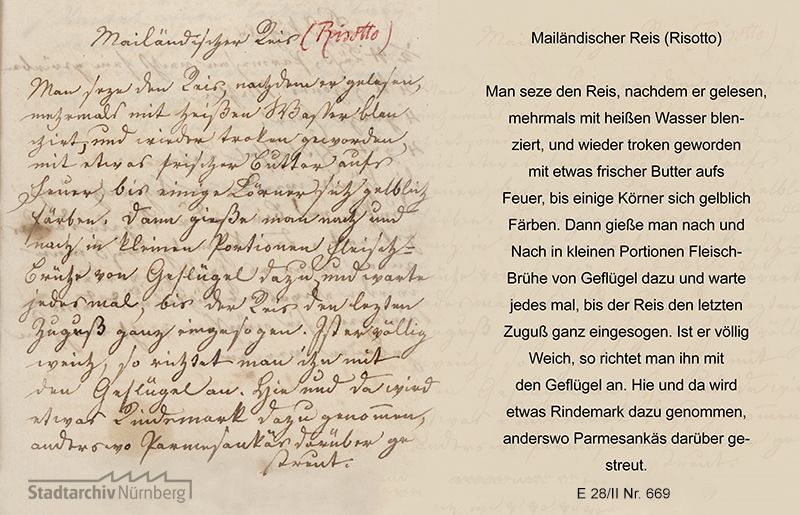 Mailändischer Reis (Risotto)
Man seze den Reis, nachdem er gelesen,
mehrmals mit heißen Wasser blen-
chirt, und wieder troken geworden,
mit etwas frischer Butter aufs
Feuer, bis einige Körner sich gelblich
färben. Dann gieße man nach und
nach in kleinen Portionen Fleisch-
Brühe von Geflügel dazu, und warte
jedesmal, bis der Reis den lezten
Zuguß ganz eingesogen. Ist er völlig
weich, so richtet man ihn mit
den Geflügel an. Hie und da wird
etwas Rindemark dazu genommen,
anderswo Parmesankäs darüber ge
streut.
Stadtarchiv Nürnberg
Mailändischer Reis (Risotto)
Man seze den Reis, nachdem er gelesen,
mehrmals mit heißen Wasser blen-
ziert, und wieder troken geworden
mit etwas frischer Butter aufs
Feuer, bis einige Körner sich gelblich
Färben. Dann gieße man nach und
Nach in kleinen Portionen Fleisch-
Brühe von Geflügel dazu und warte
jedes mal, bis der Reis den letzten
Zuguß ganz eingesogen. Ist er völlig
Weich, so richtet man ihn mit
den Geflügel an. Hie und da wird
etwas Rindemark dazu genommen,
anderswo Parmesankäs darüber ge-
streut.
E 28/II Nr. 669